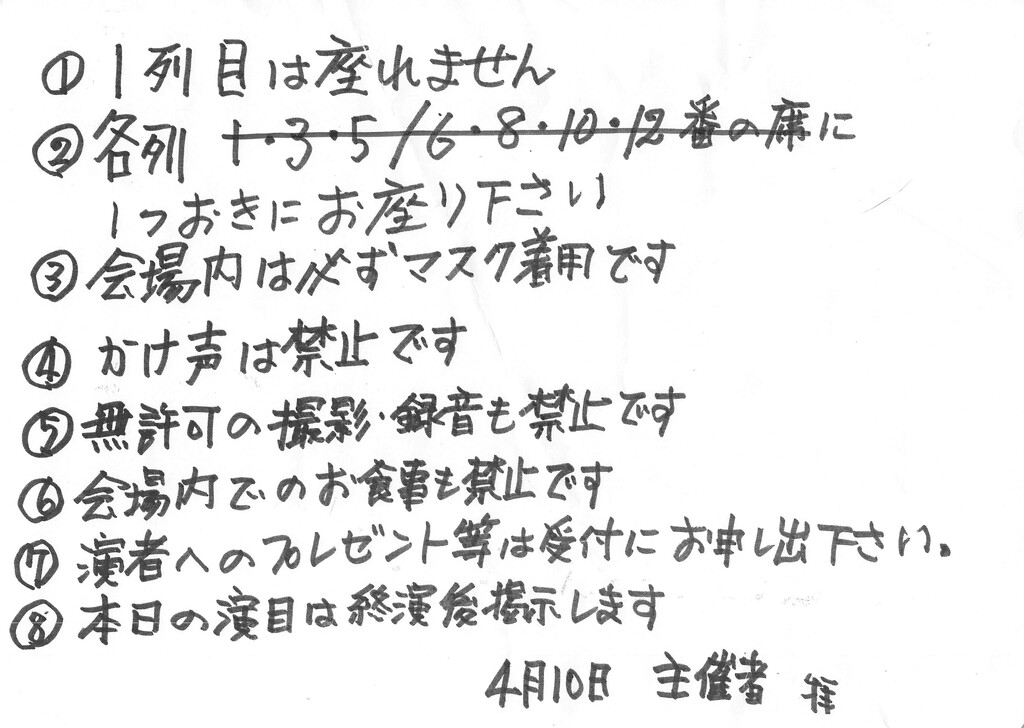 ① 1列目は座れません
② 各列 1・3・5/6・8・10・12番の席に
1つおきにお座り下さい
③ 会場内は必ずマスク着用です
④ かけ声は禁止です
⑤ 無許可の撮影・録音も禁止です
⑥ 会場内でのお食事も禁止です
⑦ 演者へのプレゼント等は受付にお申し出下さい。
⑧ 本日の演目は終演後掲示します
4月10日 主催者 拝